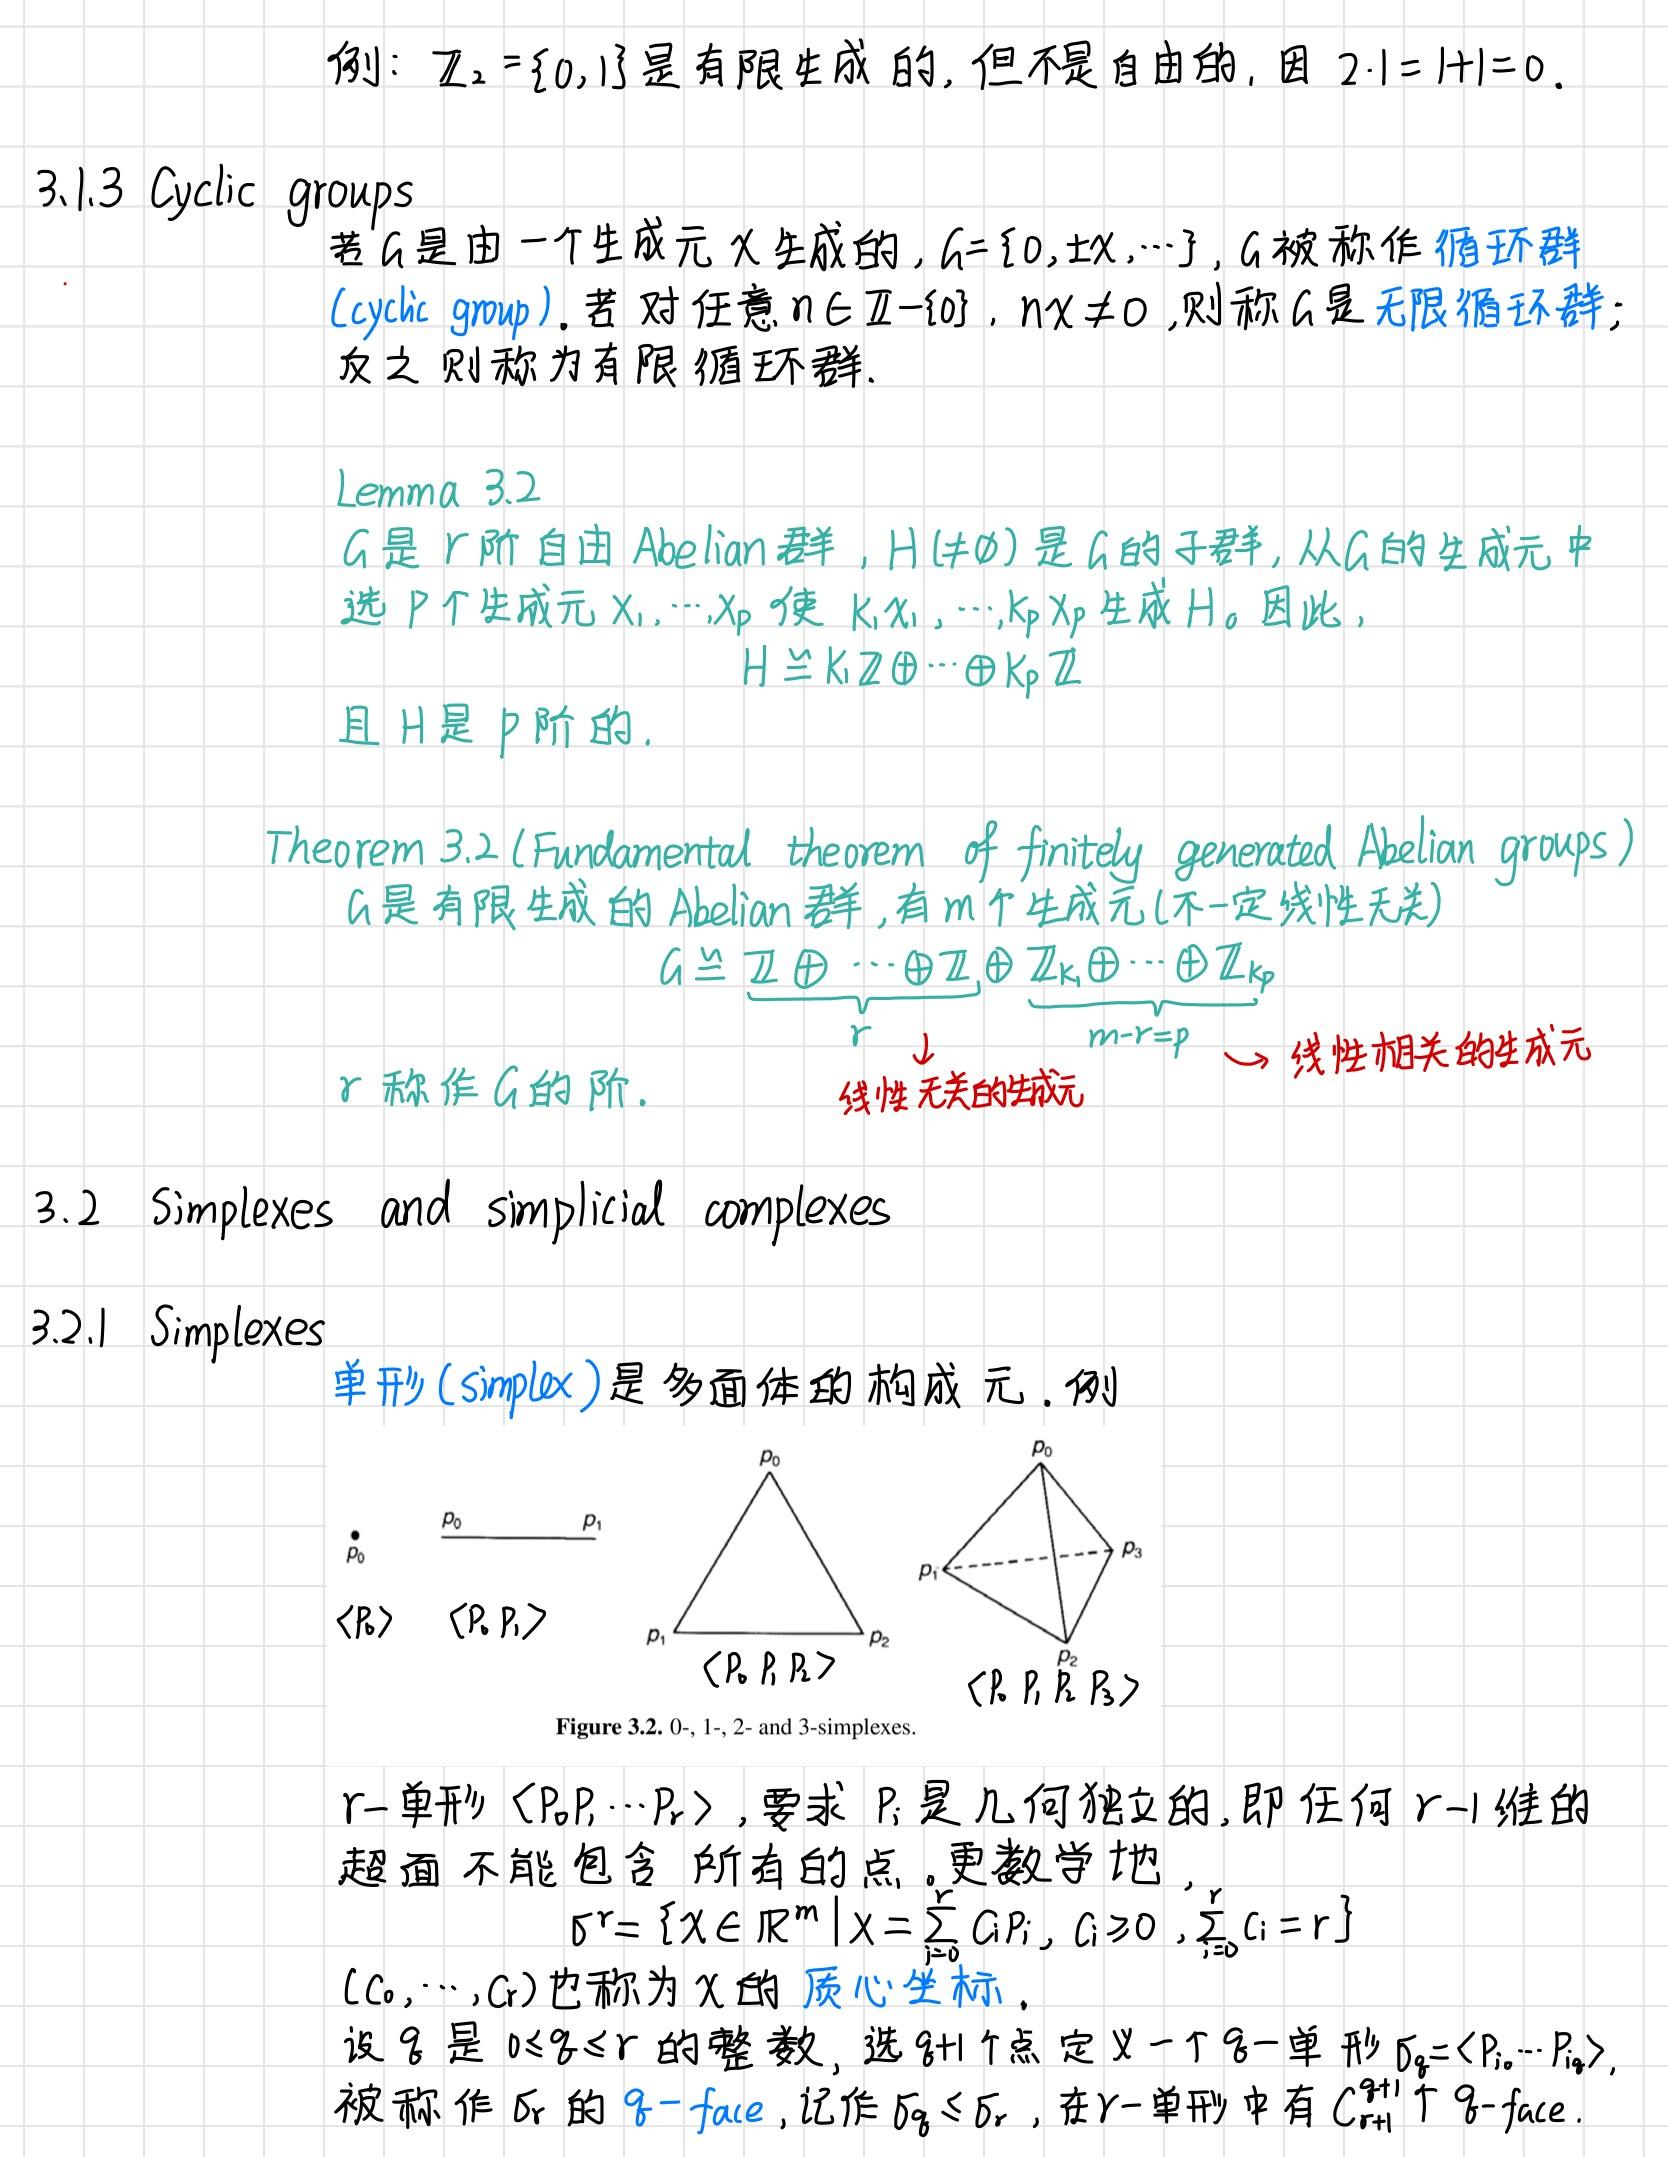 例: ℤ₂ = {0,1} 是有限生成的, 但不是自由的, 因 2·1 = 1+1 = 0.
3.1.3 Cyclic groups
若 G 是由一个生成元 x 生成的, G = {0, ±x, ⋯}, G 被称作 循环群
(cyclic group). 若对任意 n ∈ ℤ-{0}, nx ≠ 0, 则称 G 是 无限循环群;
反之则称为有限循环群.
Lemma 3.2
G 是 r 阶自由 Abelian 群, H (≠∅) 是 G 的子群, 从 G 的生成元中
选 p 个生成元 x₁, ⋯, xₚ 使 k₁x₁, ⋯, kₚxₚ 生成 H。因此,
H ≅ k₁ℤ ⊕ ⋯ ⊕ kₚℤ
且 H 是 p 阶的.
Theorem 3.2 (Fundamental theorem of finitely generated Abelian groups)
G 是有限生成的 Abelian 群, 有 m 个生成元(不一定线性无关)
G ≅ ℤ ⊕ ⋯ ⊕ ℤ ⊕ ℤ_{k₁} ⊕ ⋯ ⊕ ℤ_{kₚ}
r ↓ m-r=p → 线性相关的生成元
r 称作 G 的阶. 线性无关的生成元
3.2 Simplexes and simplicial complexes
3.2.1 Simplexes
单形 (simplex) 是多面体的构成元. 例
p₀
p₀
p₀ p₁
p₀
p₁ p₂
p₀
p₁ p₃
p₂
<P₀> <P₀P₁> <P₀P₁P₂> <P₀P₁P₂P₃>
Figure 3.2. 0-, 1-, 2- and 3-simplexes.
r-单形 <P₀P₁⋯Pᵣ>, 要求 Pᵢ 是几何独立的, 即任何 r-1 维的
超面不能包含所有的点。更数学地,
σ^r = {x ∈ ℝ^m | x = ∑_{i=0}^{r} CᵢPᵢ, Cᵢ ≥ 0, ∑_{i=0}^{r} Cᵢ = r}
(C₀, ⋯, Cᵣ) 也称为 x 的 质心坐标.
设 q 是 0≤q≤r 的整数, 选 q+1 个点定义一个 q-单形 σ_q = <P_{i₀}⋯P_{i_q}>,
被称作 σᵣ 的 q-face, 记作 σ_q ≤ σᵣ, 在 r-单形中有 C_{r+1}^{q+1} 个 q-face.